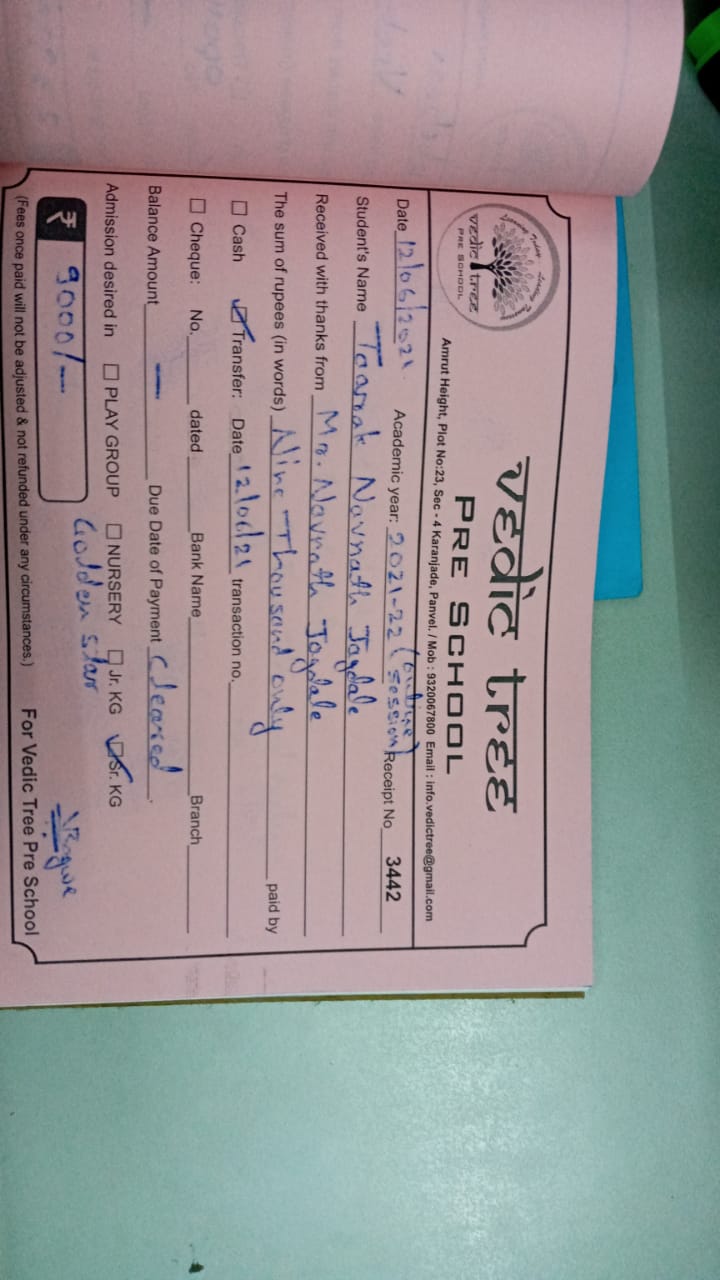 vedic tree
PRE SCHOOL
vedic tree
PRE SCHOOL
Amrut Height, Plot No:23, Sec - 4 Karanjade, Panvel. / Mob : 9320067800 Email : info.vedictree@gmail.com
Date 12/06/2021 Academic year: 2021-22 (online session) Receipt No 3442
Student's Name Taarak Navnath Jagdale
Received with thanks from Mr. Navnath Jagdale
The sum of rupees (in words) Nine Thousand only paid by
☐ Cash ☑ Transfer: Date 12/06/21 transaction no.
☐ Cheque: No. dated Bank Name Branch
Balance Amount — Due Date of Payment Cleared
Admission desired in ☐ PLAY GROUP ☐ NURSERY ☐ Jr. KG ☑ Sr. KG
Golden star
₹ 9000/-
(Fees once paid will not be adjusted & not refunded under any circumstances.) For Vedic Tree Pre School